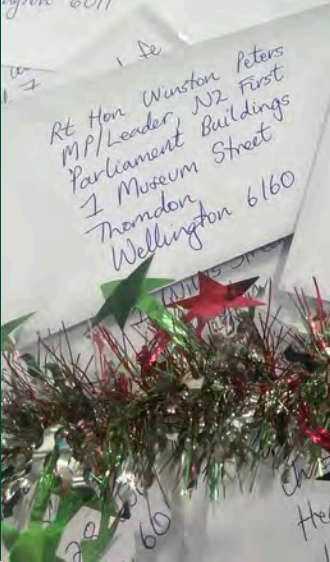 Rt Hon Winston Peters
MP/Leader, NZ First
Parliament Buildings
1 Museum Street
Thorndon
Wellington 6160
60